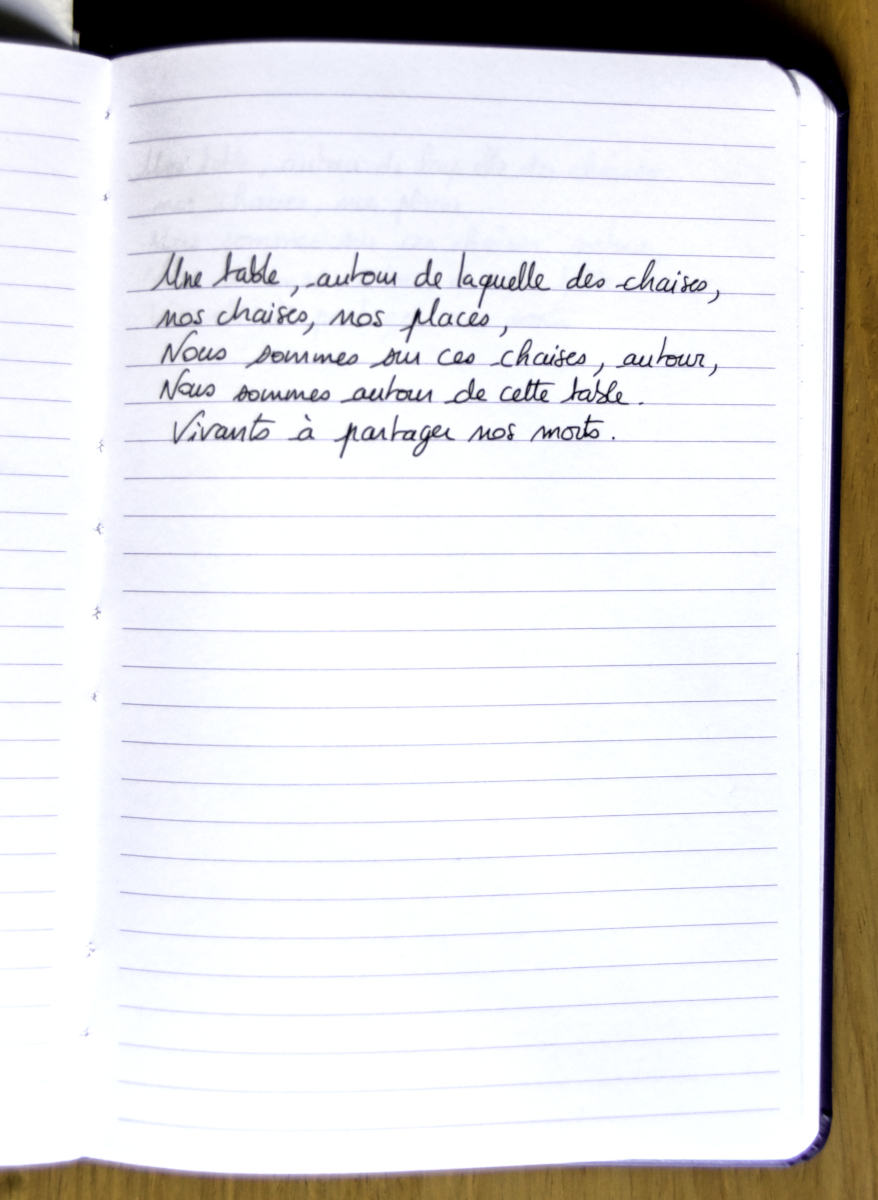 Une table, autour de laquelle des chaises,
nos chaises, nos places,
Nous sommes sur ces chaises, autour,
Nous sommes autour de cette table.
Vivants à partager nos morts.